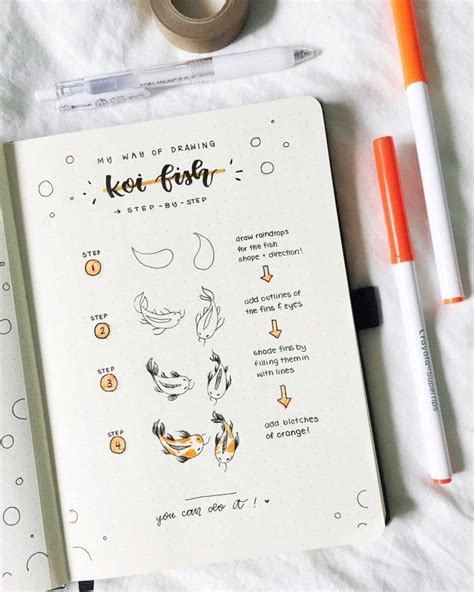 MY WAY OF DRAWING
koi fish
→ STEP-BY-STEP
STEP
1
draw raindrops
for the fish
shape + direction!
STEP
2
add outlines of
the fins & eyes
STEP
3
shade fins by
filling them in
with lines
STEP
4
add blotches
of orange!
you can do it! ♥
Crayola SuperTips